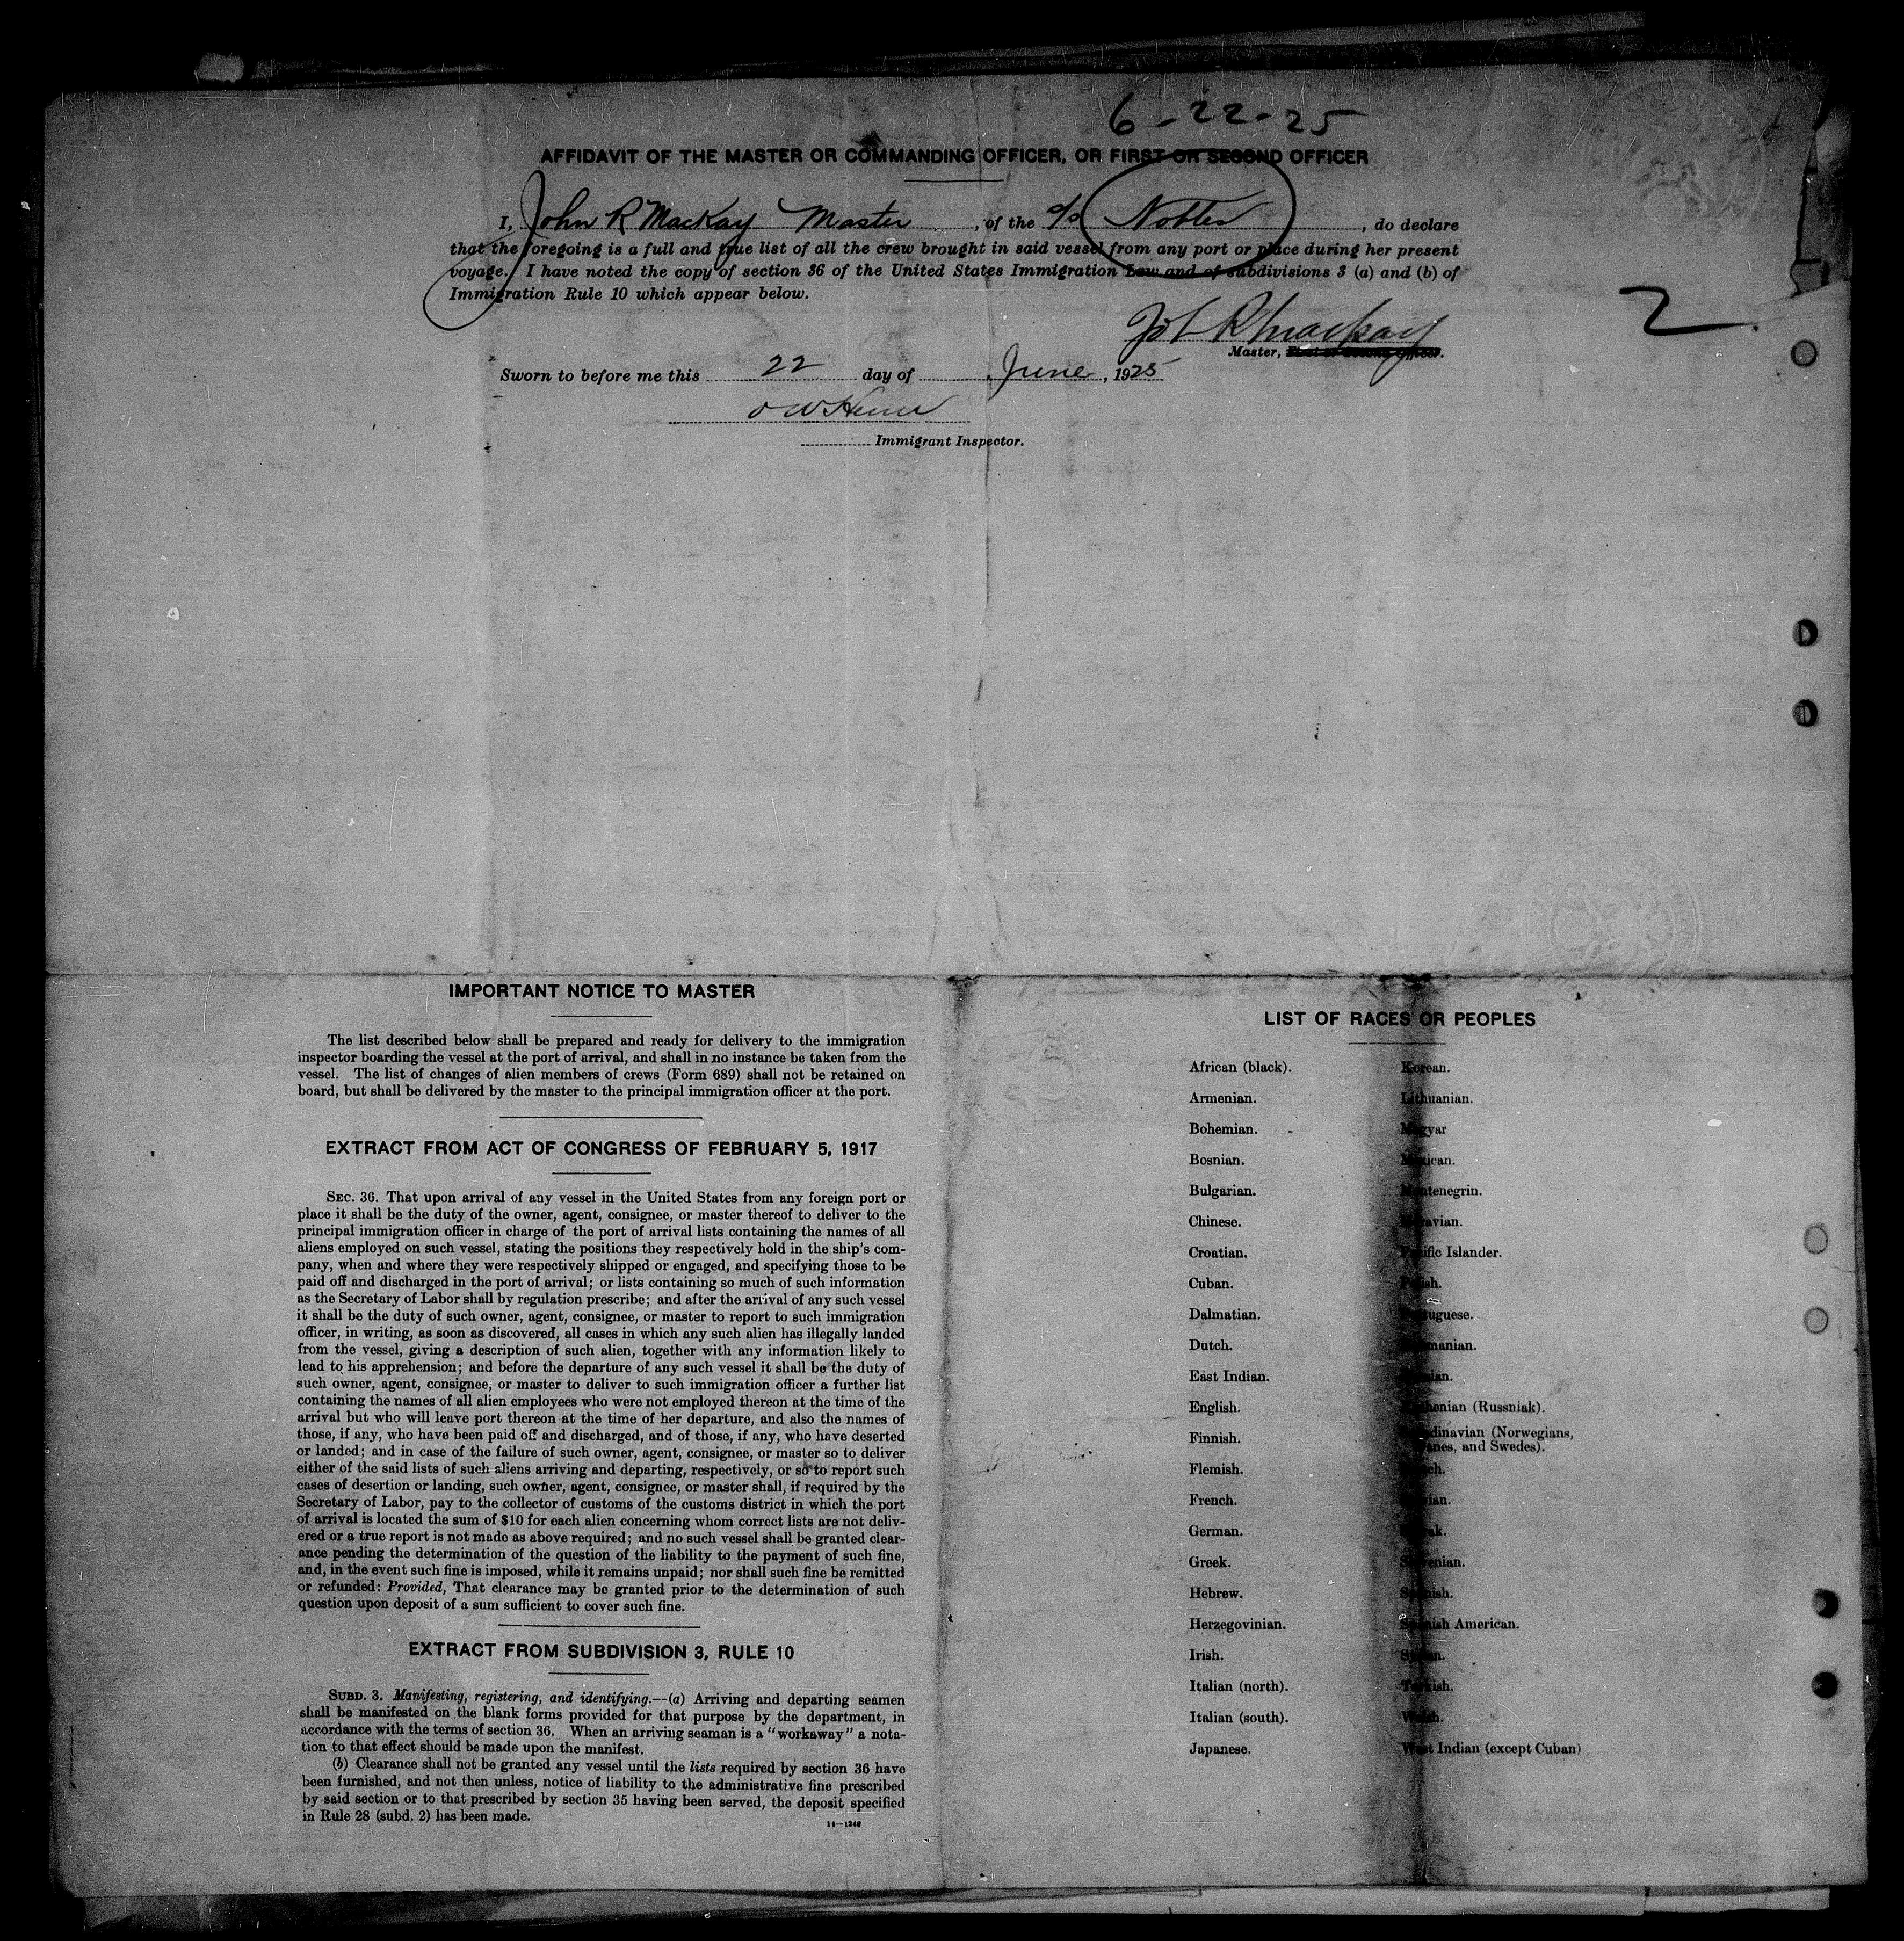 6-22-25
AFFIDAVIT OF THE MASTER OR COMMANDING OFFICER, OR FIRST OR SECOND OFFICER
I, John R MacKay Master, of the S/S, do declare
that the foregoing is a full and true list of all the crew brought in said vessel from any port or place during her present
voyage. I have noted the copy of section 36 of the United States Immigration Law and of subdivisions 3 (a) and (b) of
Immigration Rule 10 which appear below.
2
Master, First or Second Officer.
Sworn to before me this 22 day of June, 1925
Immigrant Inspector.
IMPORTANT NOTICE TO MASTER
The list described below shall be prepared and ready for delivery to the immigration
inspector boarding the vessel at the port of arrival, and shall in no instance be taken from the
vessel. The list of changes of alien members of crews (Form 689) shall not be retained on
board, but shall be delivered by the master to the principal immigration officer at the port.
EXTRACT FROM ACT OF CONGRESS OF FEBRUARY 5, 1917
SEC. 36. That upon arrival of any vessel in the United States from any foreign port or
place it shall be the duty of the owner, agent, consignee, or master thereof to deliver to the
principal immigration officer in charge of the port of arrival lists containing the names of all
aliens employed on such vessel, stating the positions they respectively hold in the ship's com-
pany, when and where they were respectively shipped or engaged, and specifying those to be
paid off and discharged in the port of arrival; or lists containing so much of such information
as the Secretary of Labor shall by regulation prescribe; and after the arrival of any such vessel
it shall be the duty of such owner, agent, consignee, or master to report to such immigration
officer, in writing, as soon as discovered, all cases in which any such alien has illegally landed
from the vessel, giving a description of such alien, together with any information likely to
lead to his apprehension; and before the departure of any such vessel it shall be the duty of
such owner, agent, consignee, or master to deliver to such immigration officer a further list
containing the names of all alien employees who were not employed thereon at the time of the
arrival but who will leave port thereon at the time of her departure, and also the names of
those, if any, who have been paid off and discharged, and of those, if any, who have deserted
or landed; and in case of the failure of such owner, agent, consignee, or master so to deliver
either of the said lists of such aliens arriving and departing, respectively, or so to report such
cases of desertion or landing, such owner, agent, consignee, or master shall, if required by the
Secretary of Labor, pay to the collector of customs of the customs district in which the port
of arrival is located the sum of $10 for each alien concerning whom correct lists are not deliv-
ered or a true report is not made as above required; and no such vessel shall be granted clear-
ance pending the determination of the question of the liability to the payment of such fine,
and, in the event such fine is imposed, while it remains unpaid; nor shall such fine be remitted
or refunded: Provided, That clearance may be granted prior to the determination of such
question upon deposit of a sum sufficient to cover such fine.
EXTRACT FROM SUBDIVISION 3, RULE 10
SUBD. 3. Manifesting, registering, and identifying.--(a) Arriving and departing seamen
shall be manifested on the blank forms provided for that purpose by the department, in
accordance with the terms of section 36. When an arriving seaman is a "workaway" a nota-
tion to that effect should be made upon the manifest.
(b) Clearance shall not be granted any vessel until the lists required by section 36 have
been furnished, and not then unless, notice of liability to the administrative fine prescribed
by said section or to that prescribed by section 35 having been served, the deposit specified
in Rule 28 (subd. 2) has been made.
LIST OF RACES OR PEOPLES
African (black).
Armenian.
Bohemian.
Bosnian.
Bulgarian.
Chinese.
Croatian.
Cuban.
Dalmatian.
Dutch.
East Indian.
English.
Finnish.
Flemish.
French.
German.
Greek.
Hebrew.
Herzegovinian.
Irish.
Italian (north).
Italian (south).
Japanese.
Korean.
Lithuanian.
Magyar
Mexican.
Montenegrin.
Moravian.
Pacific Islander.
Polish.
Portuguese.
Roumanian.
Russian.
Ruthenian (Russniak).
Scandinavian (Norwegians,
Danes, and Swedes).
Scotch.
Servian.
Slovak.
Slovenian.
Spanish.
Spanish American.
Syrian.
Turkish.
Welsh.
West Indian (except Cuban)